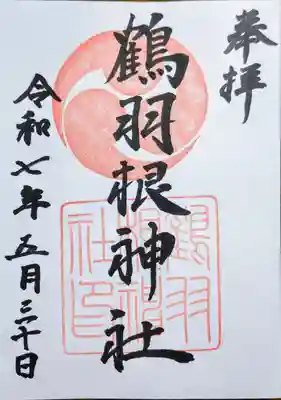 奉拝
鶴羽根神社
鶴羽根神社印
令和七年五月三十日